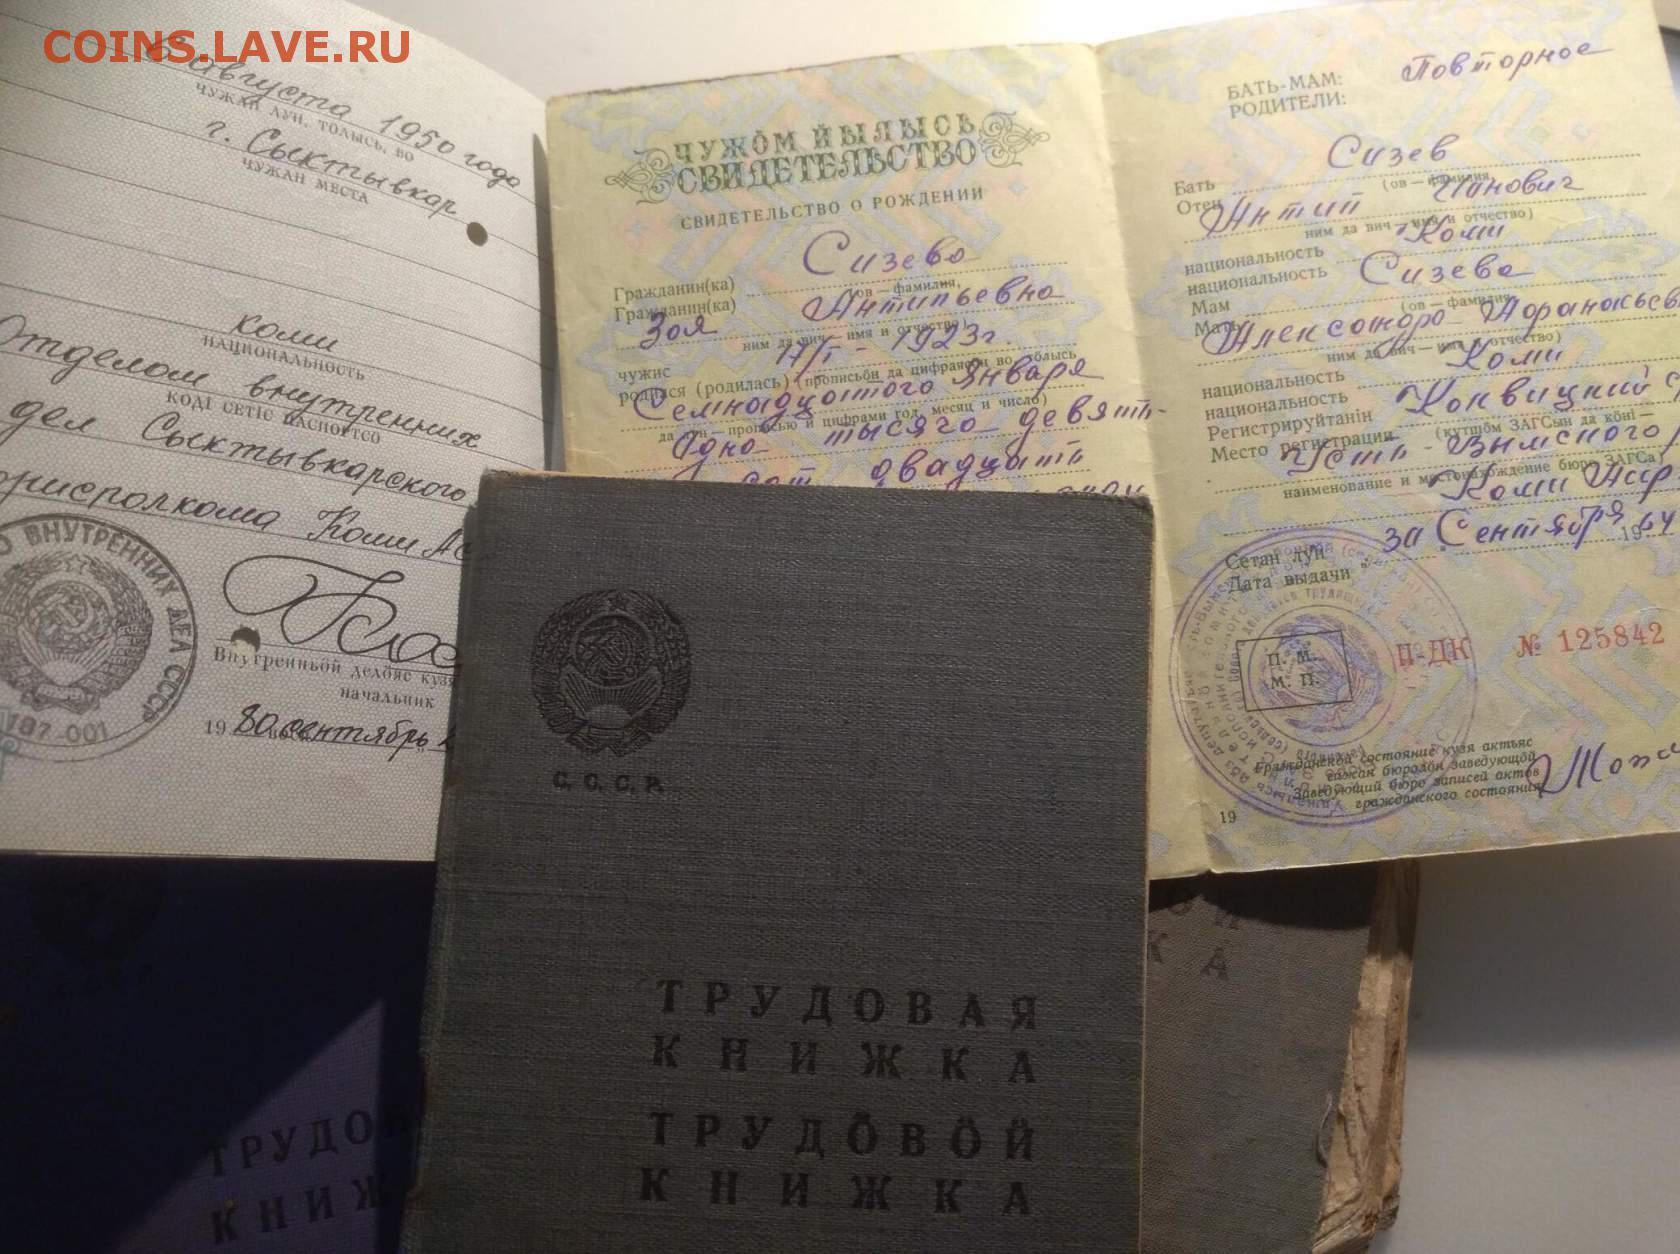 COINS.LAVE.RU
6 августа 1950 года
ЧУЖАН ЛУН, ТОЛЫСЬ, ВО
г. Сыктывкар
ЧУЖАН МЕСТА
коми
НАЦИОНАЛЬНОСТЬ
Отделом внутренних
КОДІ СЕТІС ПАСПОРТСО
дел Сыктывкарского
Коми АС
ВНУТРЕННИХ ДЕЛ СССР
187-001
Внутренньӧй делӧяс кузя
начальник
19 80 сентябрь
ЧУЖӦМ ЙЫЛЫСЬ
СВИДЕТЕЛЬСТВО
СВИДЕТЕЛЬСТВО О РОЖДЕНИИ
Сизева
Гражданин(ка)
(ов — фамилия,
Гражданин(ка) Антипьевна
Зоя
ним да вич — имя и отчество)
чужис 17/I - 1923г.
родился (родилась) (прописьӧн да цифраӧн во, толысь
Семнадцатого января
да лун — прописью и цифрами год, месяц и число)
Одна тысяча девять-
сот двадцать
БАТЬ-МАМ:
РОДИТЕЛИ:
Повторное
Сизев
Бать
(ов — фамилия,
Отец
Антип Панович
ним да вич — имя и отчество)
национальность Коми
национальность
Мам Сизева
(ов — фамилия,
Мать
Александра
ним да вич — имя и отчество)
национальность Коми
национальность
Регистрируйтанін
(кутшӧм ЗАГСын да кӧні —
Место регистрации
Усть-Вымского
наименование и местонахождение бюро ЗАГСа)
Коми
за Сентября 19
Сетан лун
Дата выдачи
П. М.
М. П.
П-ДК № 125842
Гражданскӧй состояние кузя актъяс
гижан бюроӧн заведующӧй
Заведующий бюро записей актов
гражданского состояния
19
С. С. С. Р.
ТРУДОВАЯ
КНИЖКА
ТРУДӦВӦЙ
КНИЖКА
ТРУДОВ
КНИЖ
КА